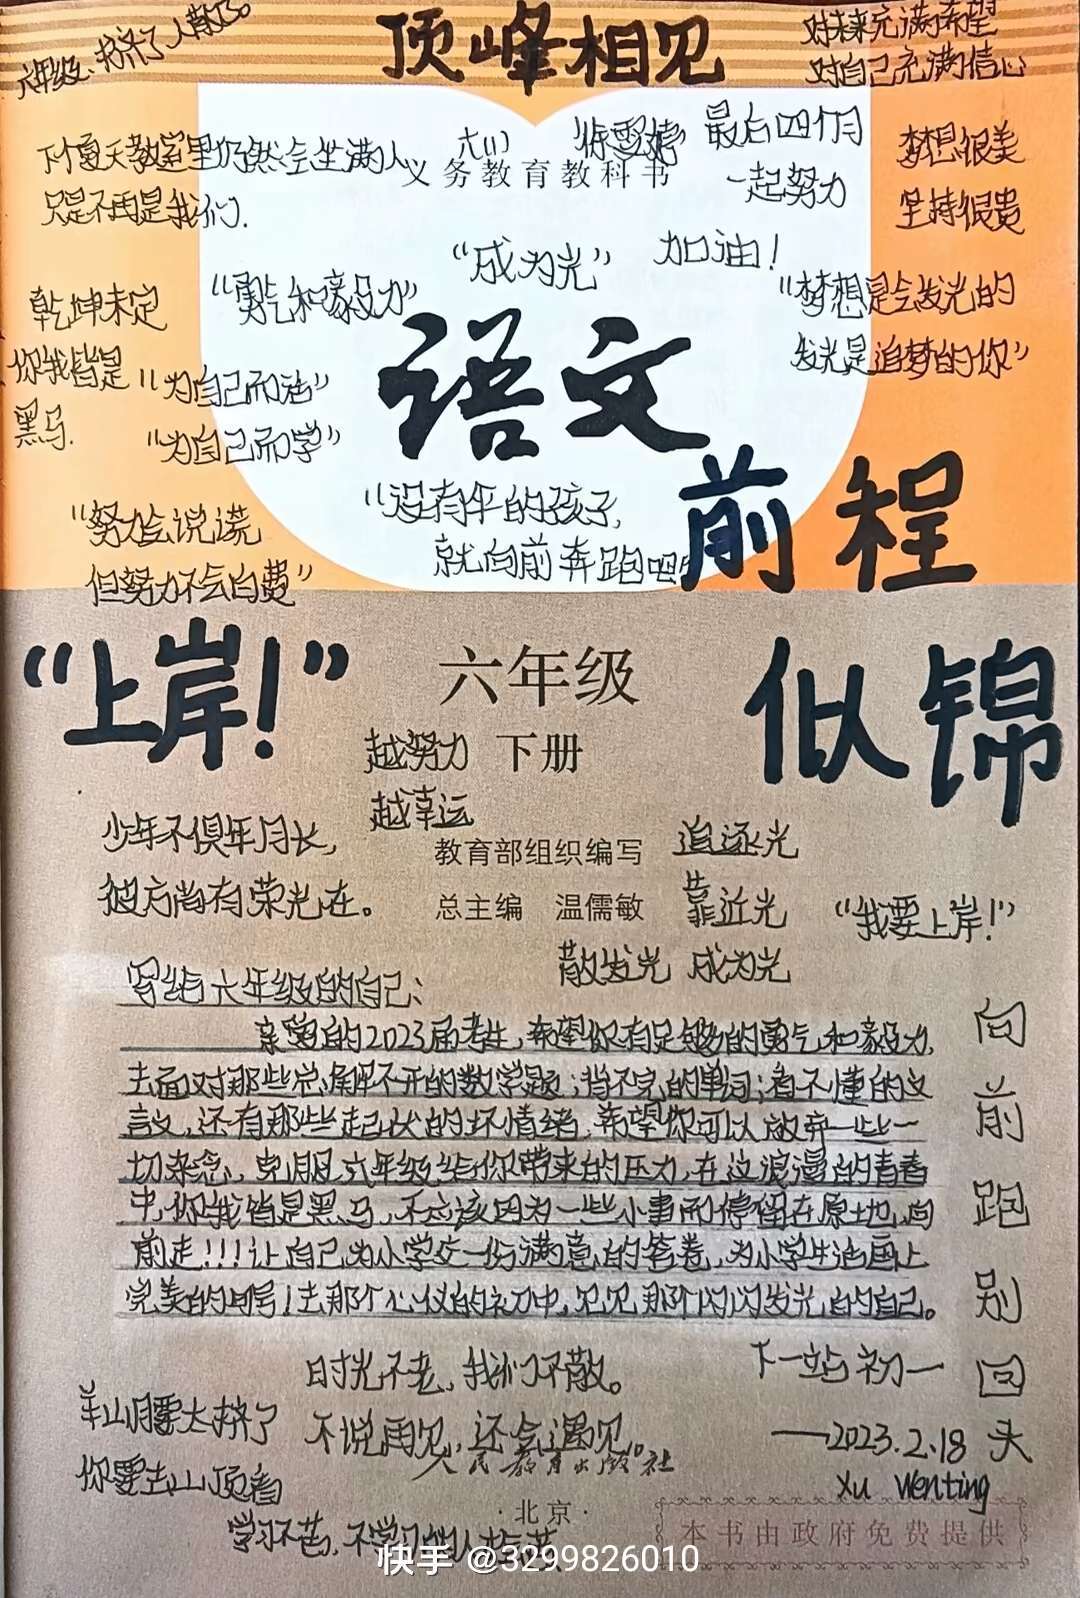 顶峰相见
六年级、挤了人散了
对未来充满希望
对自己充满信心
下个夏天教室里仍然会坐满人
只是不再是我们.
六(1)
义务教育教科书
最后四个月
一起努力
加油!
梦想很美
坚持很贵
"成为光"
"勇气和毅力"
乾坤未定
你我皆是
黑马.
"为自己而活"
"为自己而学"
"梦想是会发光的
发光是追梦的你"
语文
"努力会说谎
但努力不会白费"
"没有伞的孩子,
就向前奔跑吧"
前程
似锦
"上岸!"
六年级
下册
越努力
越幸运
少年不惧年月长,
彼方尚有荣光在。
教育部组织编写
总主编 温儒敏
追逐光
靠近光
散发光 成为光
"我要上岸!"
写给六年级的自己:
亲爱的2023届考生,希望你有足够的勇气和毅力,
去面对那些总解不开的数学题;背不完的单词;看不懂的文
言文,还有那些起伏的坏情绪,希望你可以放弃一些一
切杂念,克服六年级给你带来的压力,在这浪漫的青春
中,你我皆是黑马,不应该因为一些小事而停留在原地,向
前走!!!让自己为小学交一份满意的答卷,为小学生涯画上
完美的句号!去那个心仪的初中,见见那个闪闪发光的自己。
向前跑别回头
时光不老,我们不散。
不说再见,还会遇见。
下一站初一
——2023.2.18
Xu Wenting
半山腰太挤了
你要去山顶看
人民教育出版社
·北京·
学习不苦,不学习的人
本书由政府免费提供
快手 @3299826010